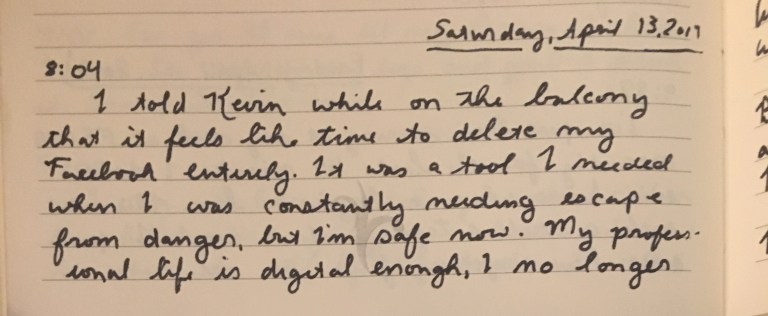 Saturday, April 13, 2019
8:04
I told Kevin while on the balcony
that it feels like time to delete my
Facebook entirely. It was a tool I needed
when I was constantly needing escape
from danger, but I'm safe now. My profess-
ional life is digital enough, I no longer